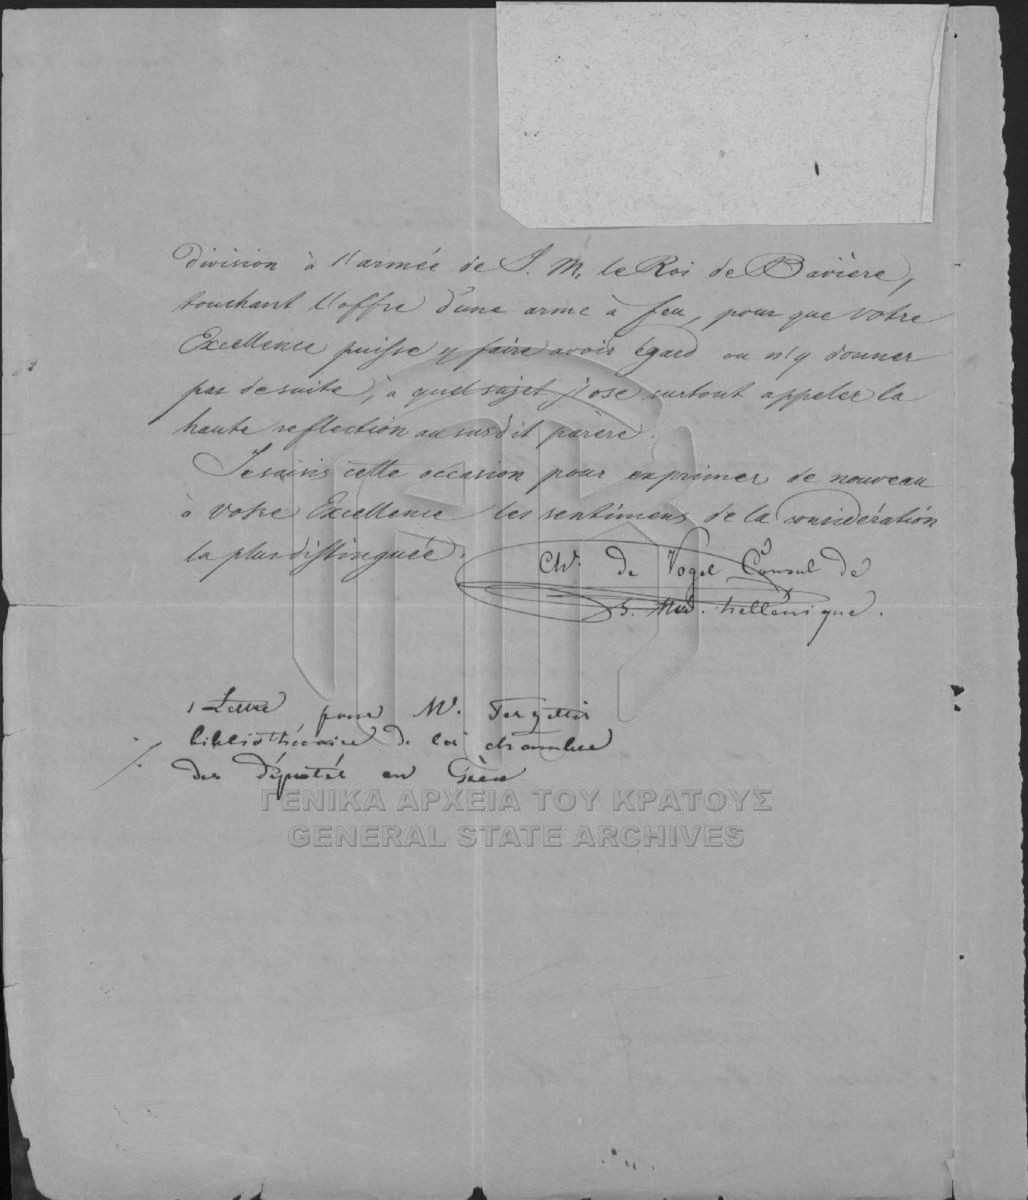 division à l'armée de S. M. le Roi de Bavière,
touchant l'offre d'une arme à feu, pour que Votre
Excellence puisse y faire avoir égard ou n'y donner
pas de suite, à quel sujet j'ose surtout appeler la
haute reflection au susdit parère.
Je saisis cette occasion pour exprimer de nouveau
à Votre Excellence les sentimens de la considération
la plus distinguée.
Chr. de Vogel Consul de
S. M. hellenique.
1 Lettre pour Mr.
bibliothécaire de la chambre
des députés en Grèce
ΓΕΝΙΚΑ ΑΡΧΕΙΑ ΤΟΥ ΚΡΑΤΟΥΣ
GENERAL STATE ARCHIVES